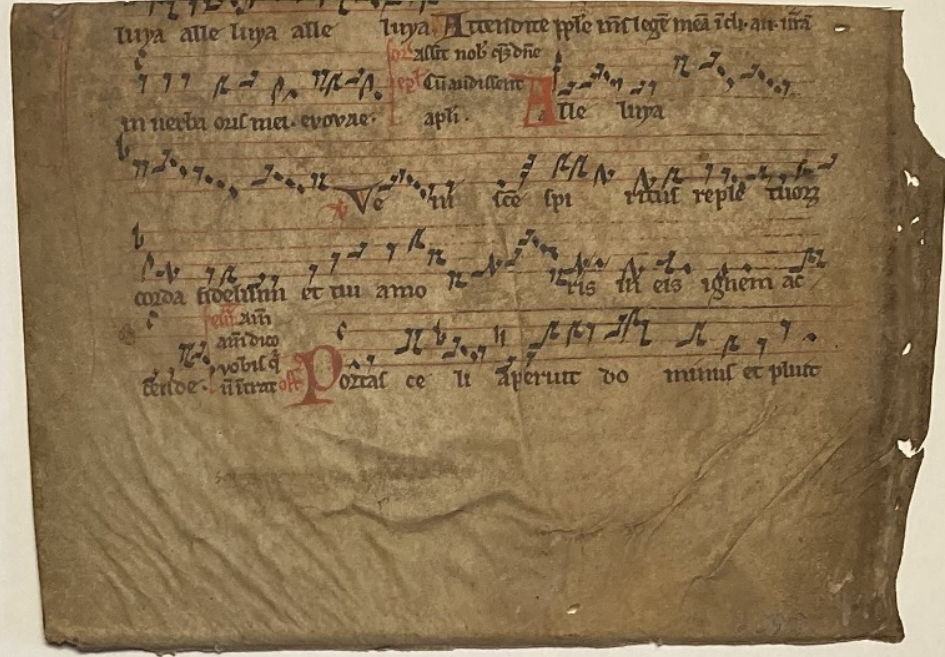 luya alle luya alle luya. Attendite pple ms legē meā
orō Assit nob qs dne
in verba oris mei. evovae. epl Cū audissent apli. Alle luya
Ve ni sce spi ritus reple tuoꝝ
corda fidelium et tui amo ris in eis ignem ac
eū Amī
amī dico
vobis q̄
cende. ū intrat off Portas ce li aperuit do minus et pluit